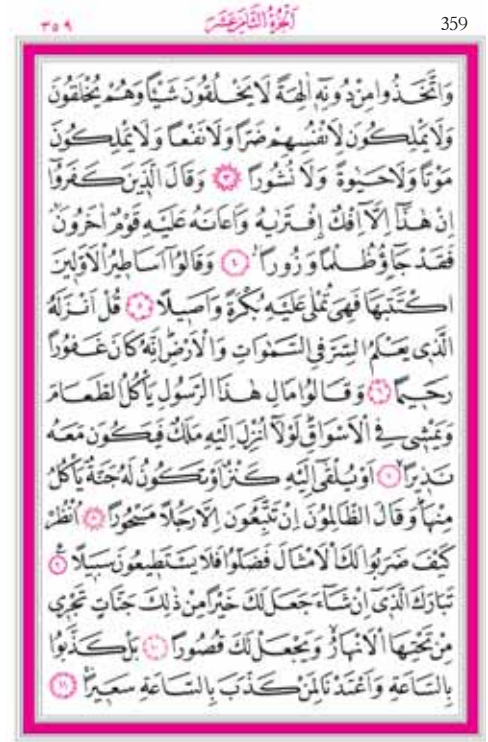 ٣٥٩ اَلْجُزْءُ الثَّامِنَ عَشَرَ 359
وَاتَّخَذُوا مِنْ دُونِهِ اٰلِهَةً لَا يَخْلُقُونَ شَيْـًٔا وَهُمْ يُخْلَقُونَ
وَلَا يَمْلِكُونَ لِاَنْفُسِهِمْ ضَرًّا وَلَا نَفْعًا وَلَا يَمْلِكُونَ
مَوْتًا وَلَا حَيٰوةً وَلَا نُشُورًا ﴿٣﴾ وَقَالَ الَّذِينَ كَفَرُٓوا
اِنْ هٰذَٓا اِلَّٓا اِفْكٌ ۨافْتَرٰيهُ وَاَعَانَهُ عَلَيْهِ قَوْمٌ اٰخَرُونَۚ
فَقَدْ جَٓاؤُ۫ ظُلْمًا وَزُورًاۚ ﴿٤﴾ وَقَالُٓوا اَسَاطِيرُ الْاَوَّلِينَ
اكْتَتَبَهَا فَهِيَ تُمْلٰى عَلَيْهِ بُكْرَةً وَاَصِيلًا ﴿٥﴾ قُلْ اَنْزَلَهُ
الَّذِي يَعْلَمُ السِّرَّ فِي السَّمٰوَاتِ وَالْاَرْضِۜ اِنَّهُ كَانَ غَفُورًا
رَحِيمًا ﴿٦﴾ وَقَالُوا مَالِ هٰذَا الرَّسُولِ يَأْكُلُ الطَّعَامَ
وَيَمْشِي فِي الْاَسْوَاقِۜ لَوْلَٓا اُنْزِلَ اِلَيْهِ مَلَكٌ فَيَكُونَ مَعَهُ
نَذِيرًاۙ ﴿٧﴾ اَوْ يُلْقٰٓى اِلَيْهِ كَنْزٌ اَوْ تَكُونُ لَهُ جَنَّةٌ يَأْكُلُ
مِنْهَاۜ وَقَالَ الظَّالِمُونَ اِنْ تَتَّبِعُونَ اِلَّا رَجُلًا مَسْحُورًا ﴿٨﴾ اُنْظُرْ
كَيْفَ ضَرَبُوا لَكَ الْاَمْثَالَ فَضَلُّوا فَلَا يَسْتَطِيعُونَ سَبِيلًا۟ ﴿٩﴾
تَبَارَكَ الَّذِٓي اِنْ شَٓاءَ جَعَلَ لَكَ خَيْرًا مِنْ ذٰلِكَ جَنَّاتٍ تَجْرِي
مِنْ تَحْتِهَا الْاَنْهَارُۙ وَيَجْعَلْ لَكَ قُصُورًا ﴿١٠﴾ بَلْ كَذَّبُوا
بِالسَّاعَةِ وَاَعْتَدْنَا لِمَنْ كَذَّبَ بِالسَّاعَةِ سَعِيرًاۚ ﴿١١﴾